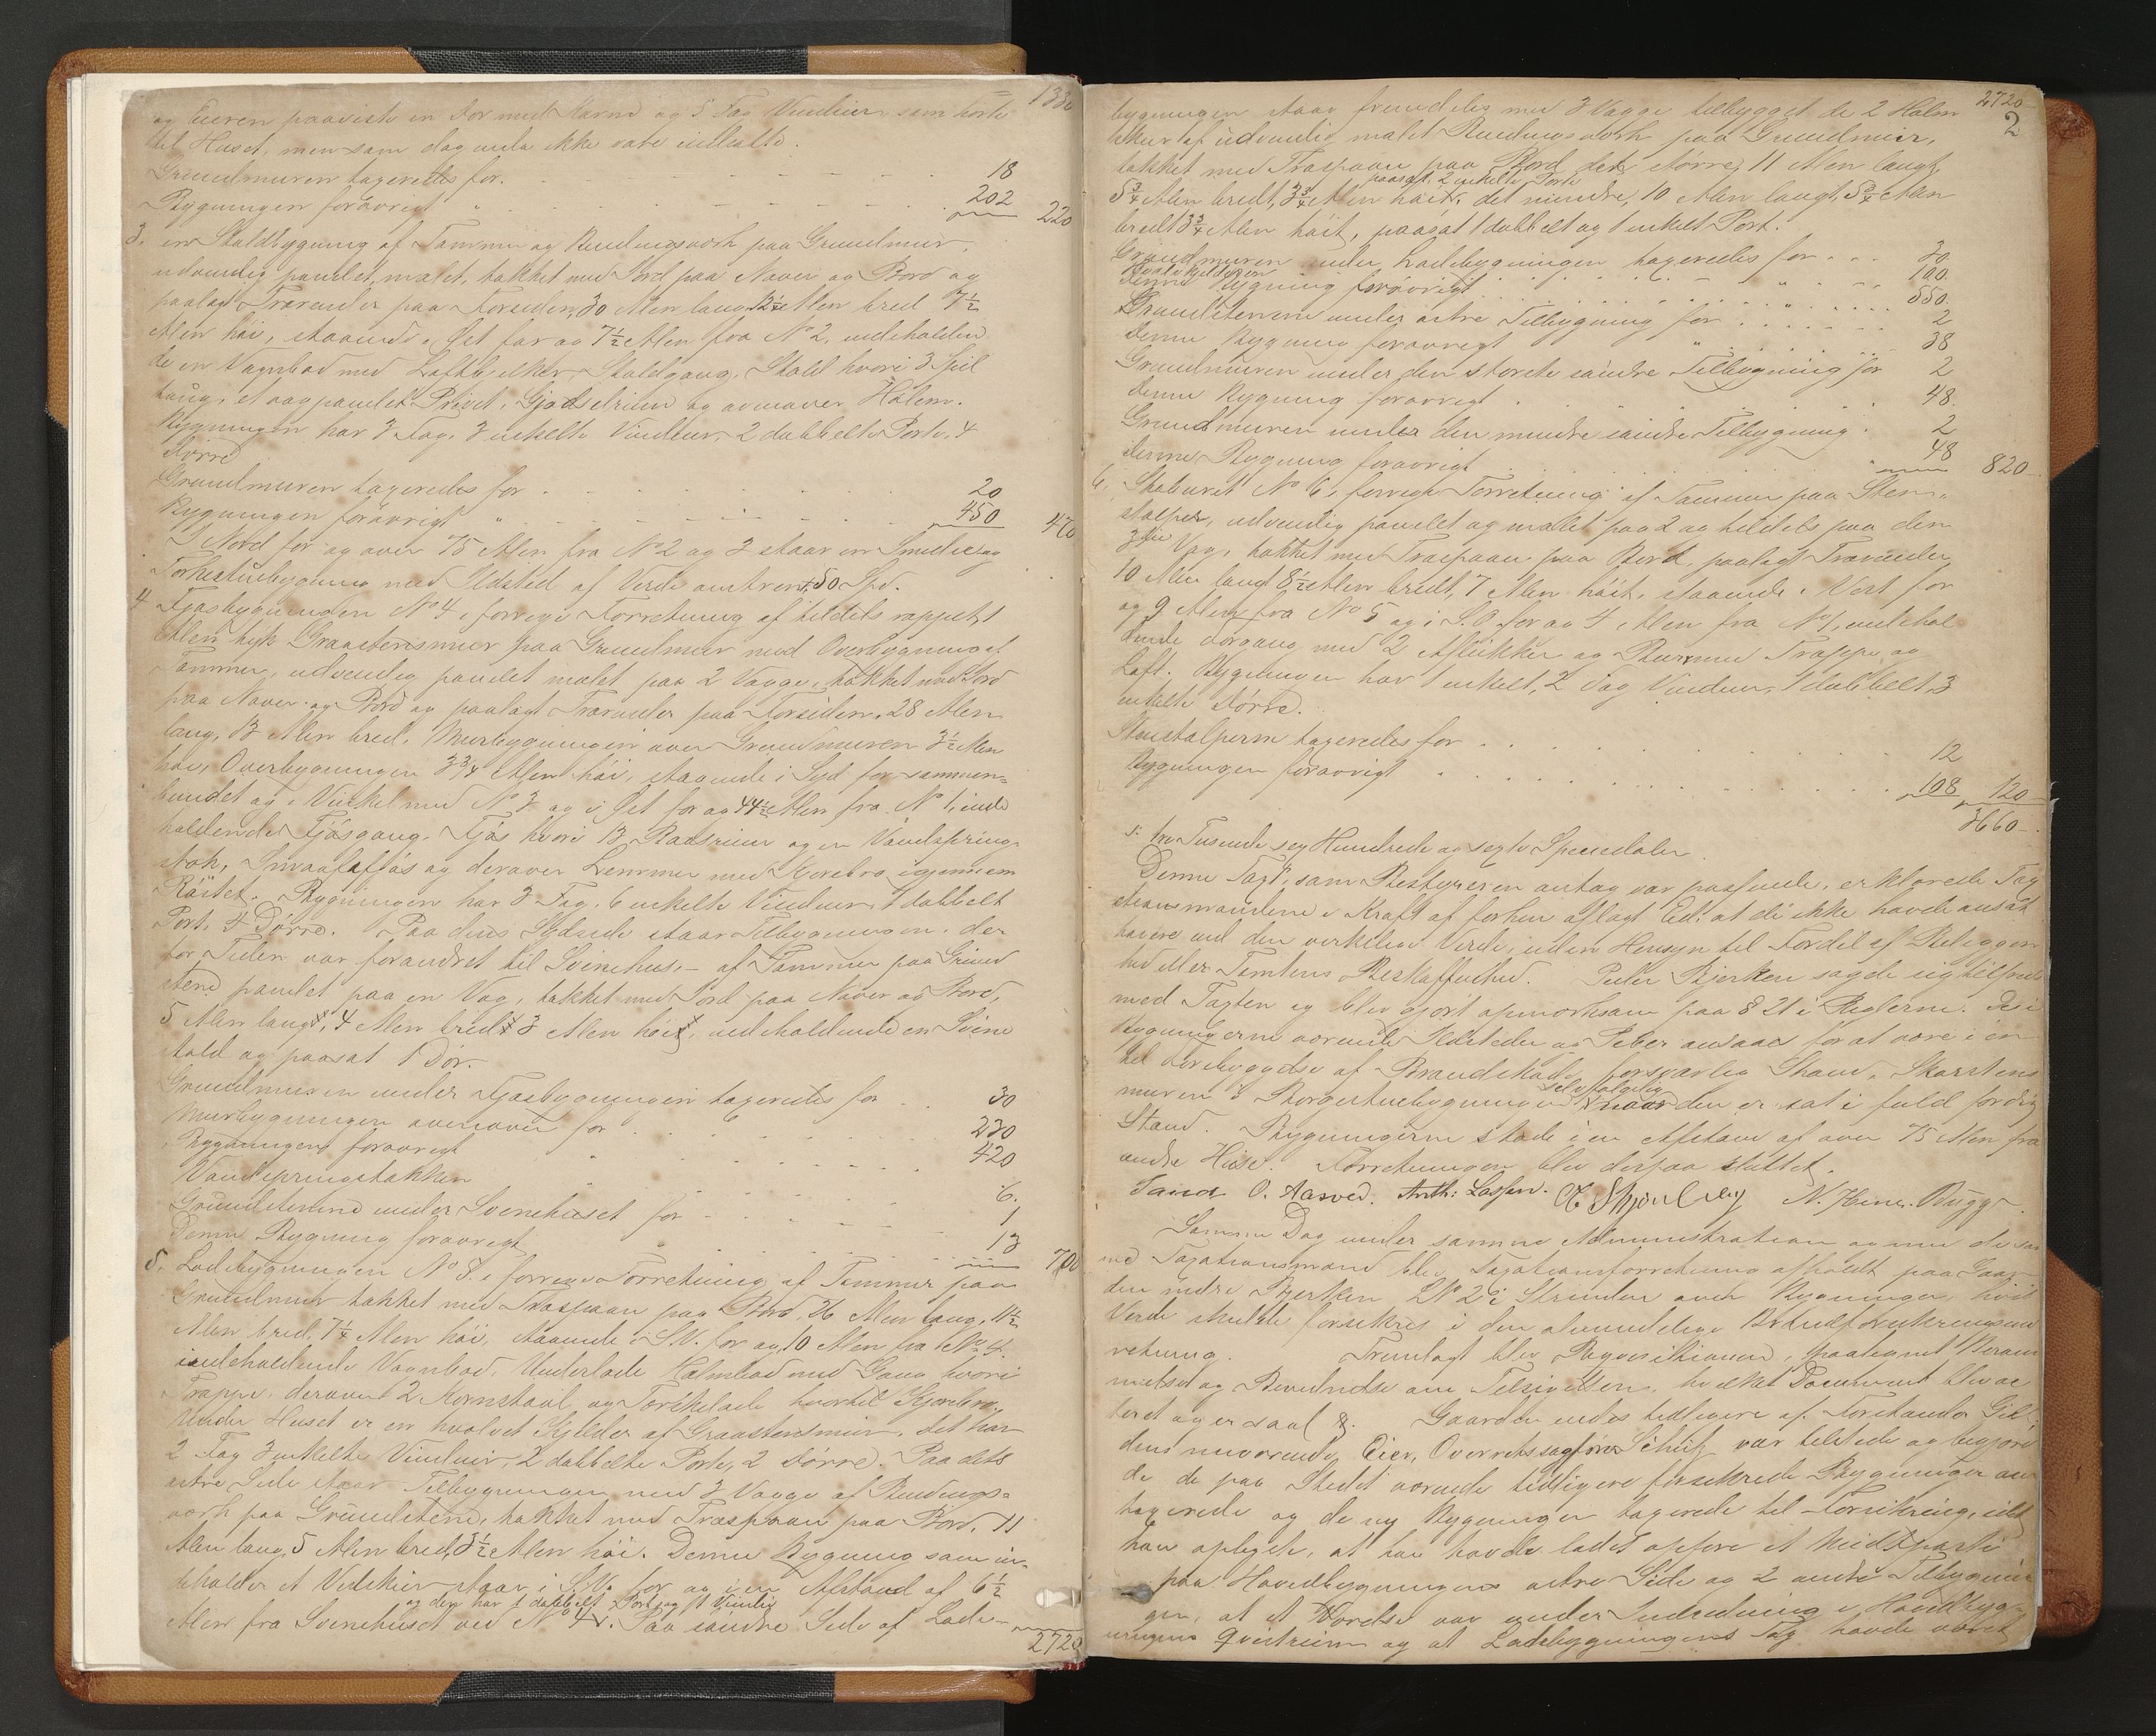 1330
og Eieren paaviste en Dør med Karme og 5 Fag Vinduer som hørte
til Huset, men som dog endu ikke vare indsatte.
Grundmuren taxeredes for. 18
Bygningen forøvrigt " 202 220
3. en Staldbygning af Tømmer og Bindingsværk paa Grundmur,
udvendig panelet, malet, takket med Jord paa Næver og Bord og
paalagt Trærender paa Forsiden, 30 Alen lang, 12¼ Alen bred 7½
Alen høi, staaende i Øst for og 7½ Alen fra No 2, indeholden
de en Vognbod med Loftbjelker, Staldgang, Stald hvori 3 Spil
toug, et panelet Privet, Gjødselrum og ovenover Halm.
Bygningen har 3 Fag, 3 enkelte Vinduer, 2 dobbelte Porte, 4
Dørre
Grundmuren taxeredes for 20
Bygningen forøvrigt " 450 470
I Nord for og over 75 Alen fra No 2 og 3 staar en Smedie og
Tørkestuebygning med Ildsted af Værdi omtrent 50 Spd.
4 Fjøsbygningen No 4 i forrige Forretning af tildels rappet, 1
Alen tyk Graasteensmur paa Grundmur med Overbygning af
Tømmer, udvendig panelet malet paa 2 Vægge, takket med Jord
paa Næver og Bord og paalagt Trærender paa Forsiden, 28 Alen
lang, 13 Alen bred, Murbygningen over Grundmuren 3½ Alen
høi, Overbygningen 3¾ Alen høi, staaende i Syd for sammen-
bundet og i Vinkel med No 3 og i Øst for og 44½ Alen fra No 1, inde
holdende Fjøsgang, Fjøs hvori 13 Baasrum og en Vandspring-
stok, Smaafæfjøs og derover Lemmer med Kjørebro igjennem
Røstet. Bygningen har 3 Fag, 6 enkelte Vinduer, 1 dobbelt
Port, 4 Dørre. Paa dens Sydside staar Tilbygningen, der
for Tiden var forandret til Svinehus, – af Tømmer paa Grund
stene panelet paa en Væg, takket med Jord paa Næver og Bord,
5 Alen lang, 4 Alen bred 3 Alen høi, indeholdende en Svine
stald og paasat 1 Dør.
Grundmuren under Fjøsbygningen taxeredes for 30
Murbygningen ovenover for 230
Bygningen forøvrigt " 420
Vandspringstokken " 6.
Grundstenene under Svinehuset for 1
Denne Bygning forøvrigt 13 700
5. Ladebygningen No 8. i forrige Forretning af Tømmer paa
Grundmur takket med Træspaan paa Bord, 36 Alen lang, 11½
Alen bred, 7¼ Alen høi, staaende i S.V. for og 10 Alen fra No 4.
indeholdende Vognbod, Underlade Halmbod med Gang hvori
Trappe, derover 2 Kornstaal og Tærskelade hvortil Kjørebro.
Under Huset er en hvælvet Kjelder af Graasteensmur, det har
2 Fag 3 enkelte Vinduer, 2 dobbelte Porte, 2 Dørre. Paa dets
østre Side staar Tilbygningen med 3 Vægge af Bindings-
værk paa Grundstene, takket med Træspaan paa Bord, 11
Alen lang, 5 Alen bred, 3½ Alen høi. Denne Bygning som in-
deholder et Vedskur staar i S.V. for og i en Afstand af 6½
og den har 1 dobbelt Port og 1 Vindu
Alen fra Svinehuset ved No 4. Paa søndre Side af Lade-
2720
2720
2
bygningen staar fremdeles med 3 Vægge tilbygget de 2 Halm
skur af udvendig malet Bindingsværk paa Grundmur,
takket med Træspaan paa Bord, det større, 11 Alen langt,
paasat 2 enkelte Porte
5¾ Alen bredt, 3¾ Alen høit, det mindre, 10 Alen langt, 5¾ Alen
bredt 3¾ Alen høit, paasat 1 dobbelt og 1 enkelt Port.
Grundmuren under Ladebygningen taxeredes for 30.
Hvælvkjelderen 100.
denne Bygning forøvrigt 550.
Grundstenene under østre Tilbygning for 2
denne Bygning forøvrigt " 38
Grundmuren under den største søndre Tilbygning for 2
denne Bygning forøvrigt 48.
Grundmuren under den mindre søndre Tilbygning 2
denne Bygning forøvrigt 48 820
6. Stabburet No 6 i forrige Forretning af Tømmer paa Sten-
stolper, udvendig panelet og malet paa 2 og tildels paa den
3die Væg, takket med Træspaan paa Bord, paalagt Trærender,
10 Alen langt 8½ Alen bredt, 7 Alen høit, staaende i Vest for
og 9 Alen fra No 5 og i S.O. for og 4 Alen fra No 1, indehol
dende Forgang med 2 Aflukker og Burrum Trappe og
Loft. Bygningen har 1 enkelt, 2 Fag Vinduer, 1 dobbelt, 3
enkelte Dørre.
Stenstolperne taxeredes for 12
Bygningen forøvrigt 108 120
3660
s: tre Tusende sex Hundrede og sexti Speciedaler.
Denne Taxt, som Bestyreren antog var passende, erklærede Tax
ationsmændene i Kraft af forhen aflagt Ed: at de ikke havde ansat
høiere end den virkelige Værdi, uden Hensyn til Fordel af Beliggen
hed eller Tomtens Beskaffenhed. Peder Bjerken sagde sig tilfreds
med Taxten og blev gjort opmærksom paa § 21 i Reglerne. De i
Bygningerne værende Ildsteder og Piber ansaaes for at være i en
til Forebyggelse af Brandskade forsvarlig Stand, Skorstens
selvfølgelig
muren i Borgestuebygningen naar den er sat i fuld færdig
Stand. Bygningerne stode i en Afstand af over 75 Alen fra
andre Huse. Forretningen blev derpaa sluttet.
Sand O. Aasved. Anth: Lassen. N. Henr. Bugge.
Samme Dag under samme Administration og med de sam
me Taxationsmænd blev Taxationsforretning afholdt paa Gaar
den nedre Bjerken LNo 2 i Strinden over Bygninger, hvis
Værdi skulde forsikres i den almindelige Brandforsikringsind
retning. Fremlagt blev Reqvisitionen, paategnet Beram
melse og Bevidnelse om Tilsigelsen, hvilket Document blev ac
teret og er saal: . Gaarden eiedes tidligere af Foretander Gill
dens nuværende Eier, Overretssagfører Schitz var tilstede og begjære
de de paa Stedet værende tidligere forsikrede Bygninger om
taxerede og de ny Bygninger taxerede til Forsikring, idet
han oplyste, at han havde ladet opføre et Midtparti
paa Hovedbygningens østre Side og 2 andre Tilbygnin
ger, at et Værelse var under Indredning i Hovedbyg-
ningens Qvistrum og at Ladebygningens Tag havde været